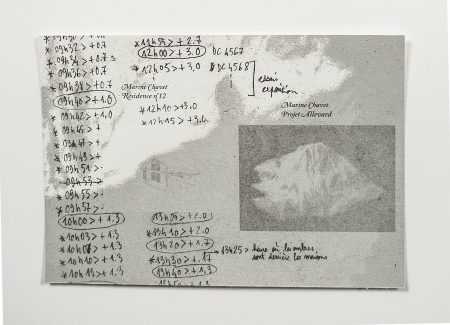 * 09h32 > + 0.7
* 09h34 > + 0.7
* 09h36 > + 0.7
* 09h38 > + 0.7
* 09h40 > + 1.0
* 09h42 > + 1.0
* 09h45 > +
* 09h47 > +
* 09h49 > +
* 09h51 >
* 09h53
* 09h55 >
* 09h57 >
10h00 > + 1.3
* 10h03 > + 1.3
* > + 1.3
* 10h10 > + 1.3
* 10h15 > + 1.3
* 11h55 > + 2.7
* 12h00 > + 3.0 DC 4567
* 12h05 > + 3.0 DC 4568
essai
exposition
Marine Chavet
Résidence n°12
* 12h10 > + 3.0
* 12h15 > + 3.0
Marine Chavet
Projet Allevard
> + 2.0
* 13h10 > + 2.0
13h20 > + 1.7
* 13h30 > + 1.7
* 13h40 > + 1.3
* 13h25 > heure où les ombres
sont derrière les maisons